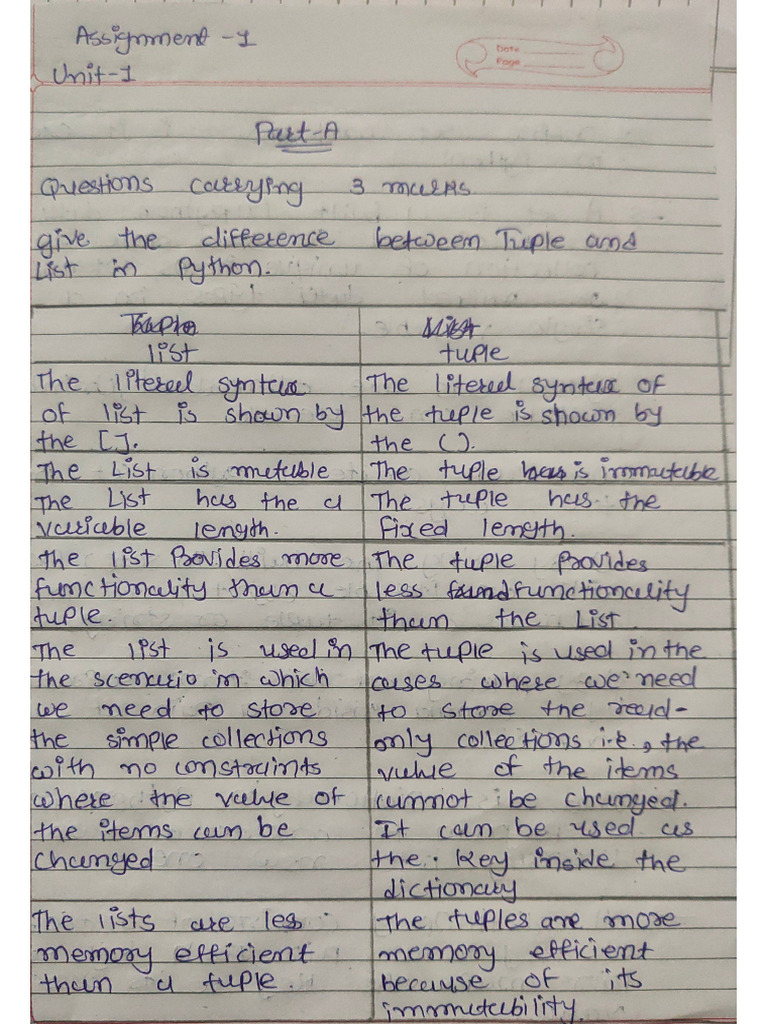 Assignment -1
Date
Unit-1
Page
Part-A
Questions carrying 3 marks
give the difference between Tuple and
List in Python.
list
The litereal syntax
of list is shown by
the [].
The List is mutable
The List has the a
variable length.
The list Provides more
functionality than a
tuple.
The list is used in
the scenario in which
we need to store
the simple collections
with no constraints
where the value of
the items can be
changed
The lists are less
memory efficient
than a tuple.
tuple
The litereal syntax of
the tuple is shown by
the ().
The tuple is immutable
The tuple has the
fixed length.
The tuple Provides
less functionality
than the List.
The tuple is used in the
cases where we need
to store the read-
only collections i.e., the
value of the items
cannot be changed.
It can be used as
the key inside the
dictionary
The tuples are more
memory efficient
because of its
immutability.